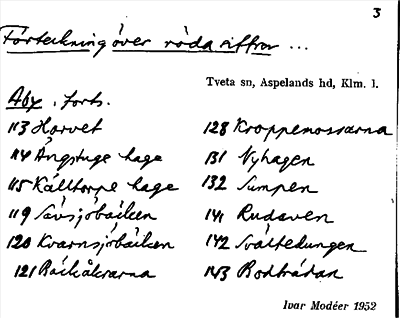 3
Förteckning över röda siffror ...
Tveta sn, Aspelands hd, Klm. l.
Åby, forts.
113 Horvet
114 Ängstuge hage
115 Källtorpe hage
119 Sävsjöbäcken
120 Kvarnsjöbäcken
121 Bäckåkrarna
128 Kroppemossarna
131 Nyhagen
132 Sumpen
141 Rudaven
142 Svältedungen
143
Ivar Modéer 1952